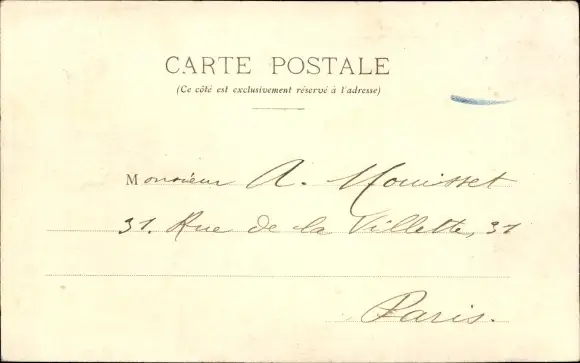 CARTE POSTALE
(Ce côté est exclusivement réservé à l'adresse)
Monsieur A. Mouisset
31. Rue de la Villette, 31
Paris.